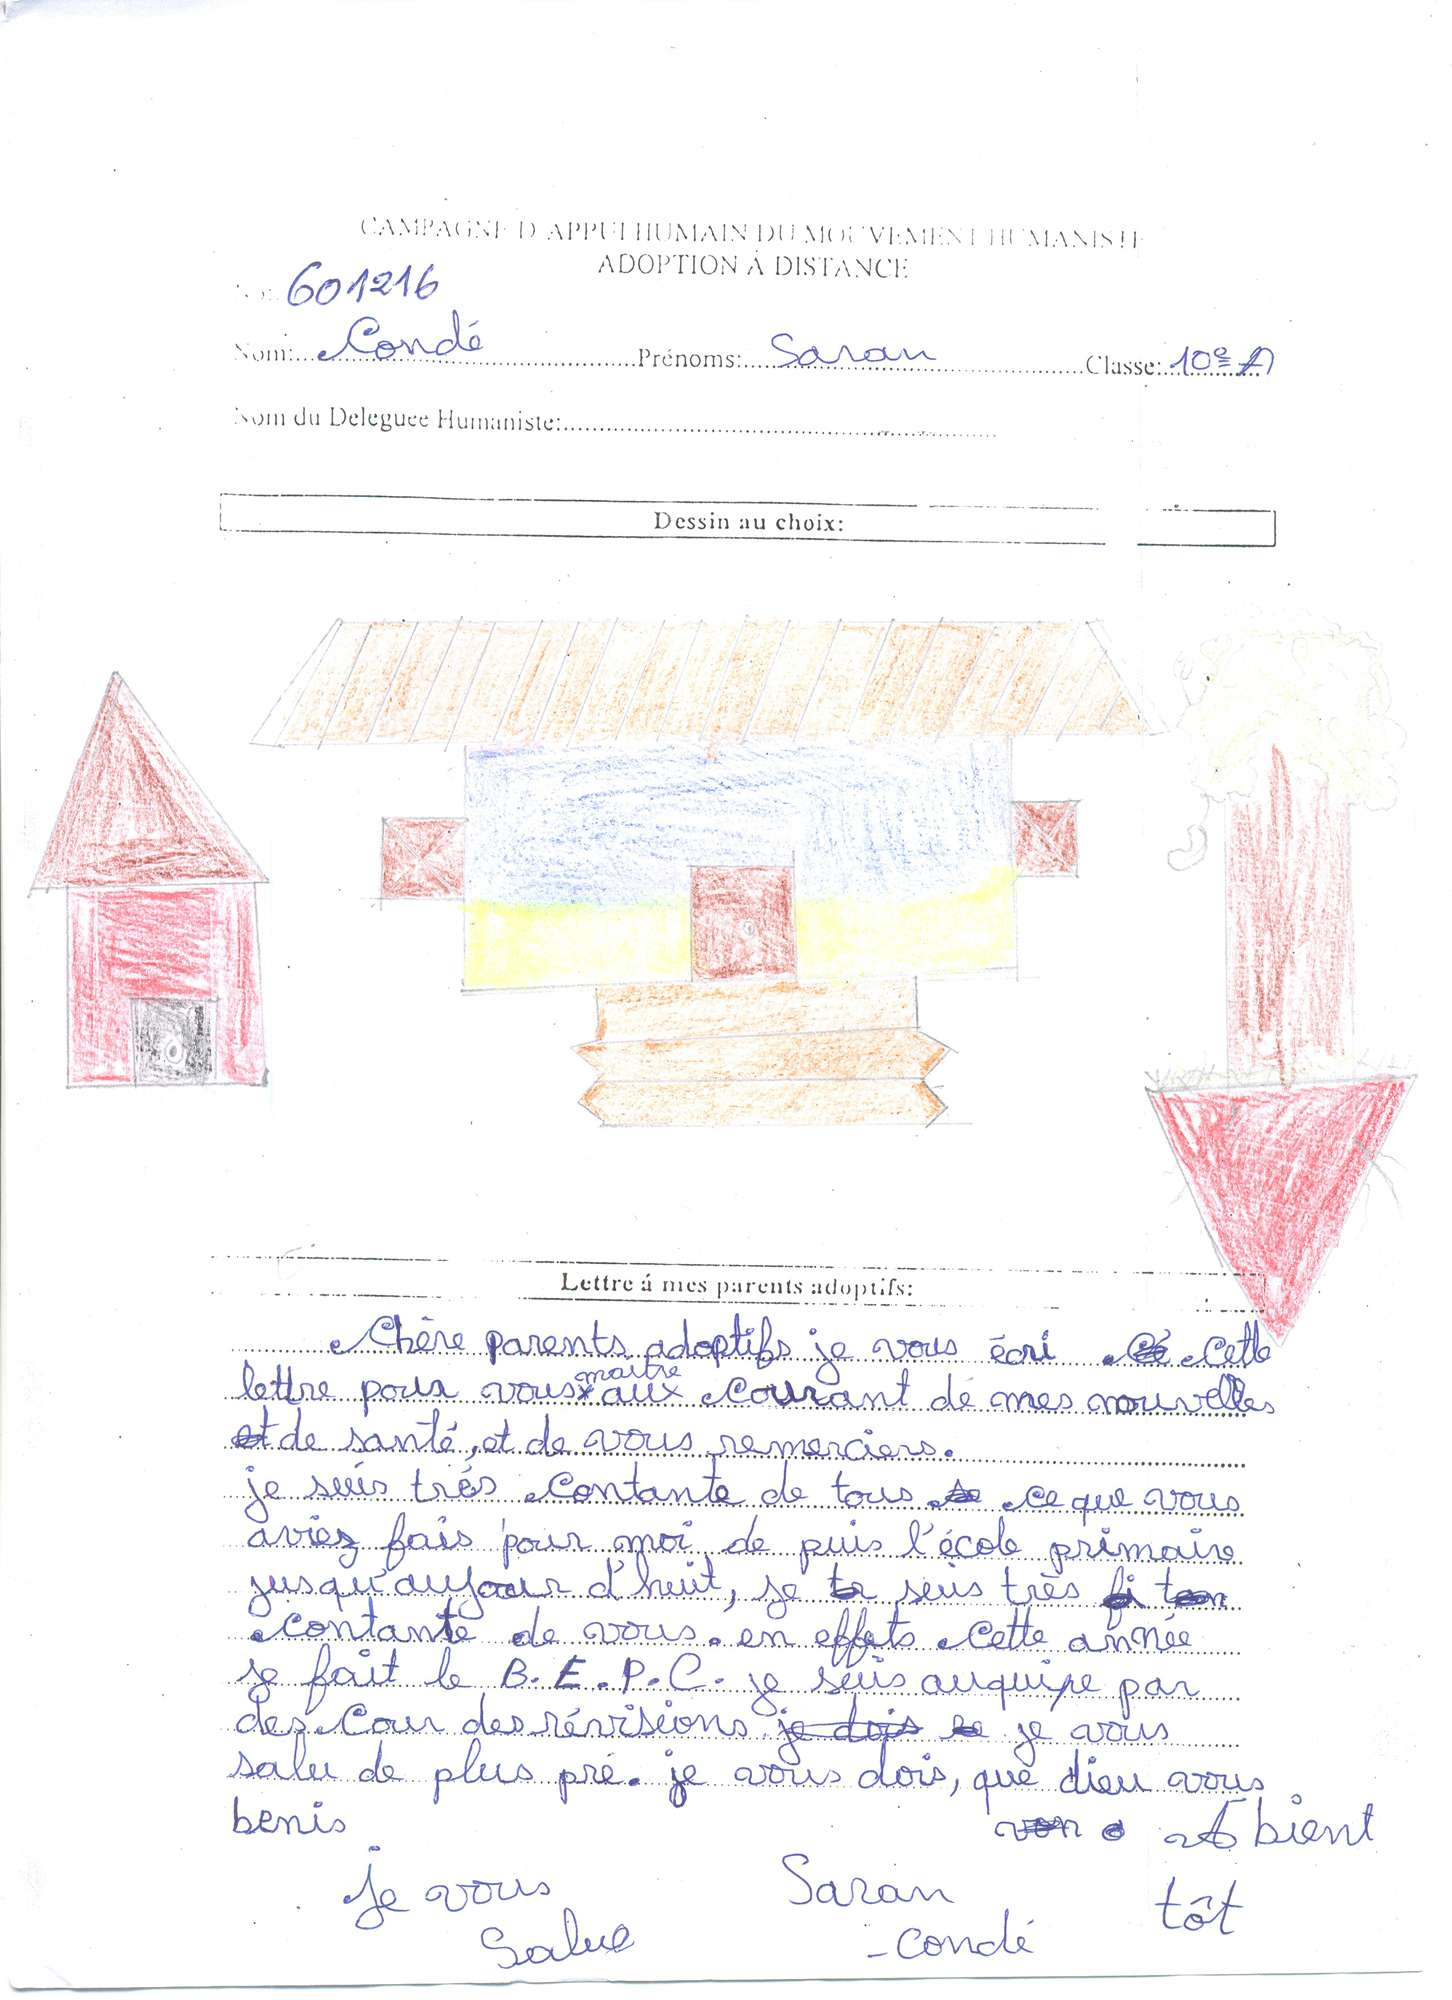 CAMPAGNE D'APPUI HUMAIN DU MOUVEMENT HUMANISTE
ADOPTION À DISTANCE
No: 601216
Nom: Condé Prénoms: Saran Classe: 10e A
Nom du Deleguee Humaniste:
Dessin au choix:
Lettre á mes parents adoptifs:
Chère parents adoptifs je vous écri cette
lettre pour vous maitre aux courant de mes nouvelles
et de santé, et de vous remerciers.
je suis très contante de tous ce que vous
aviez fais pour moi de puis l'école primaire
jusqu'aujour d'huit, je suis très
contante de vous. en effets cette année
je fait le B.E.P.C. je suis auquipe par
des Cour des révisions je dois je vous
salu de plus pré. je vous dois, que dieu vous
benis A bient
je vous Saran tôt
Salue - condé